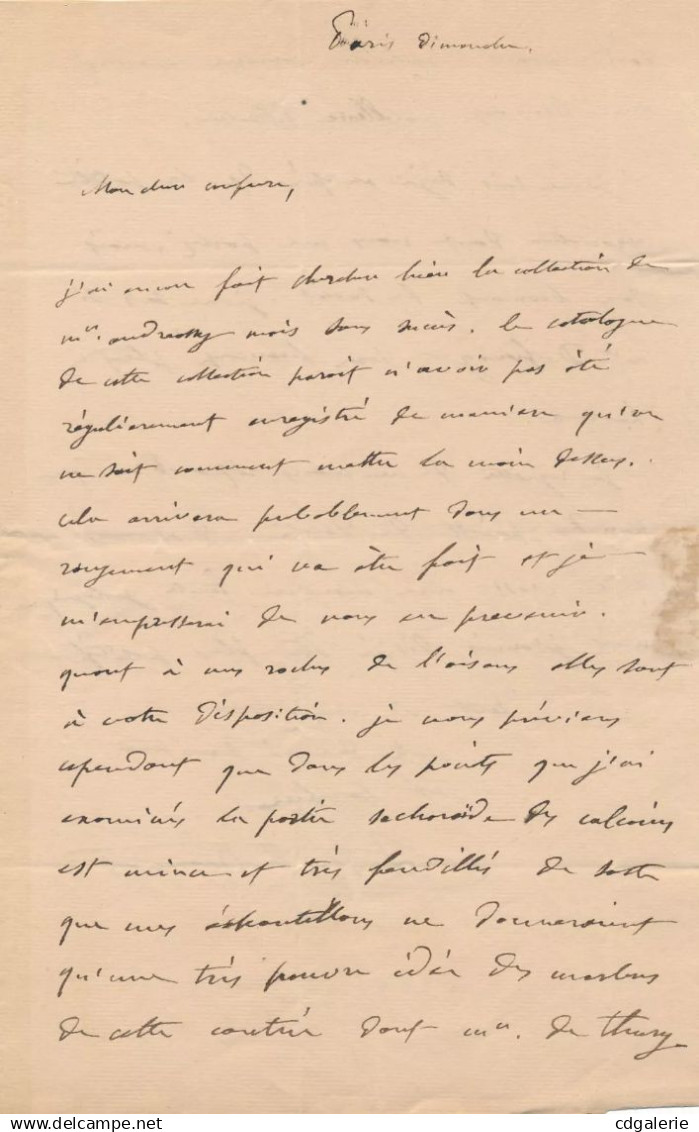 Paris Dimanche.
Mon cher confrere,
j'ai encore fait chercher hier la collection de
mr. andreossy mais sans succès. le catalogue
de cette collection parait n'avoir pas été
régulierement enregistré de maniere qu'on
ne sait comment mettre la main dessus.
cela arrivera probablement dans un
rangement qui va être fait et je
m'empresserai de vous en prevenir.
quant à mes roches de l'oisans elles sont
à votre disposition. je vous préviens
cependant que dans les points que j'ai
examinés la partie sacharoïde des calcaires
est mince et très fendillés de sorte
que mes échantillons ne donneraient
qu'une très pauvre idée des marbres
de cette contrée dont mr. de thury
cdgalerie